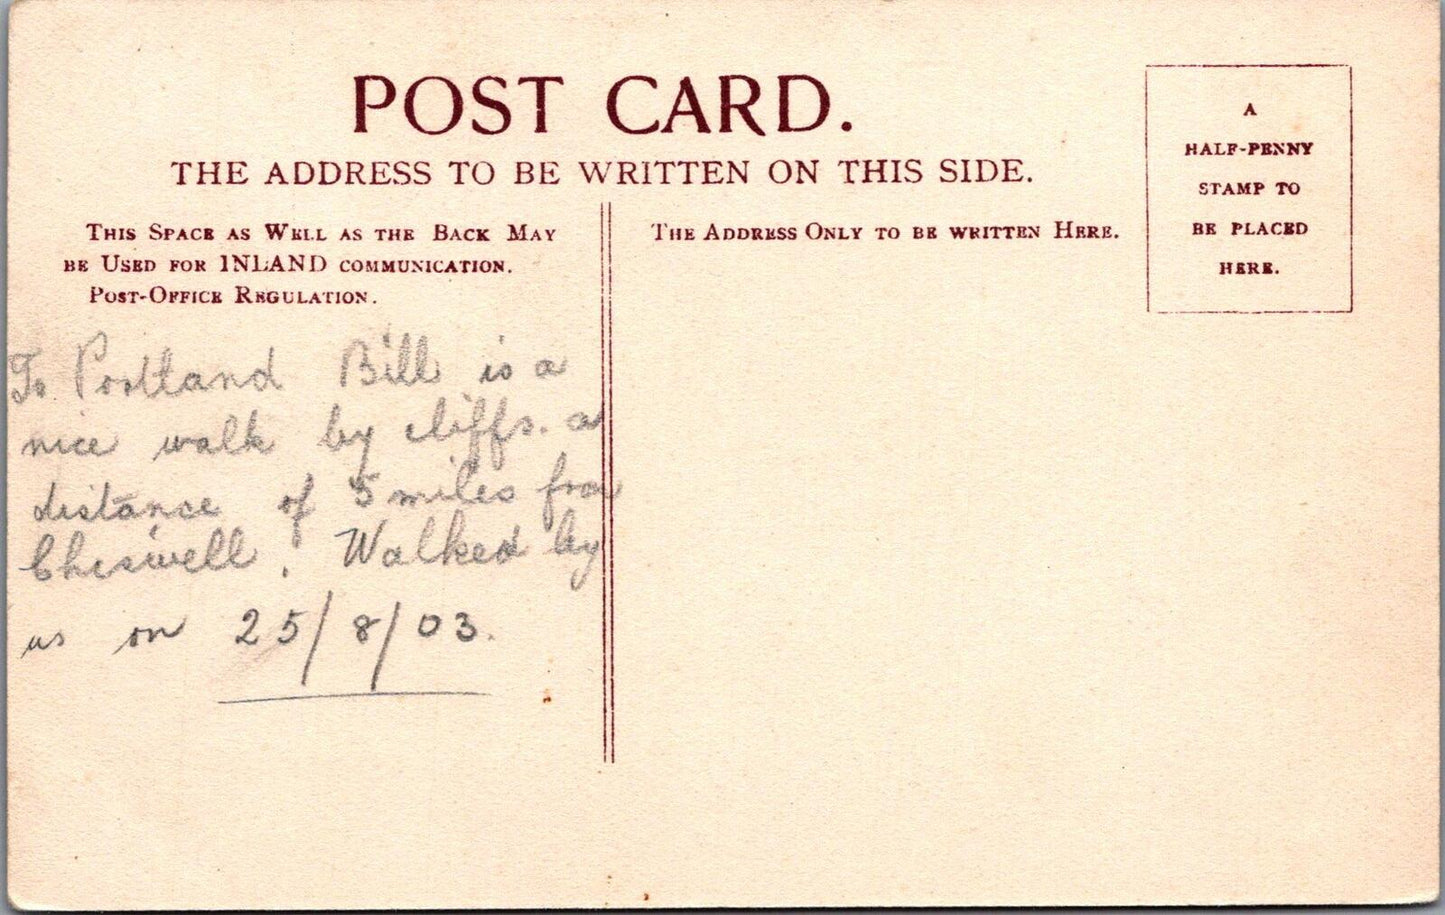 POST CARD.
THE ADDRESS TO BE WRITTEN ON THIS SIDE.
THIS SPACE AS WELL AS THE BACK MAY
BE USED FOR INLAND COMMUNICATION.
POST-OFFICE REGULATION.
To Portland Bill is a
nice walk by cliffs. a
distance of 5 miles from
Chiswell. Walked by
us on 25/8/03.
THE ADDRESS ONLY TO BE WRITTEN HERE.
A
HALF-PENNY
STAMP TO
BE PLACED
HERE.